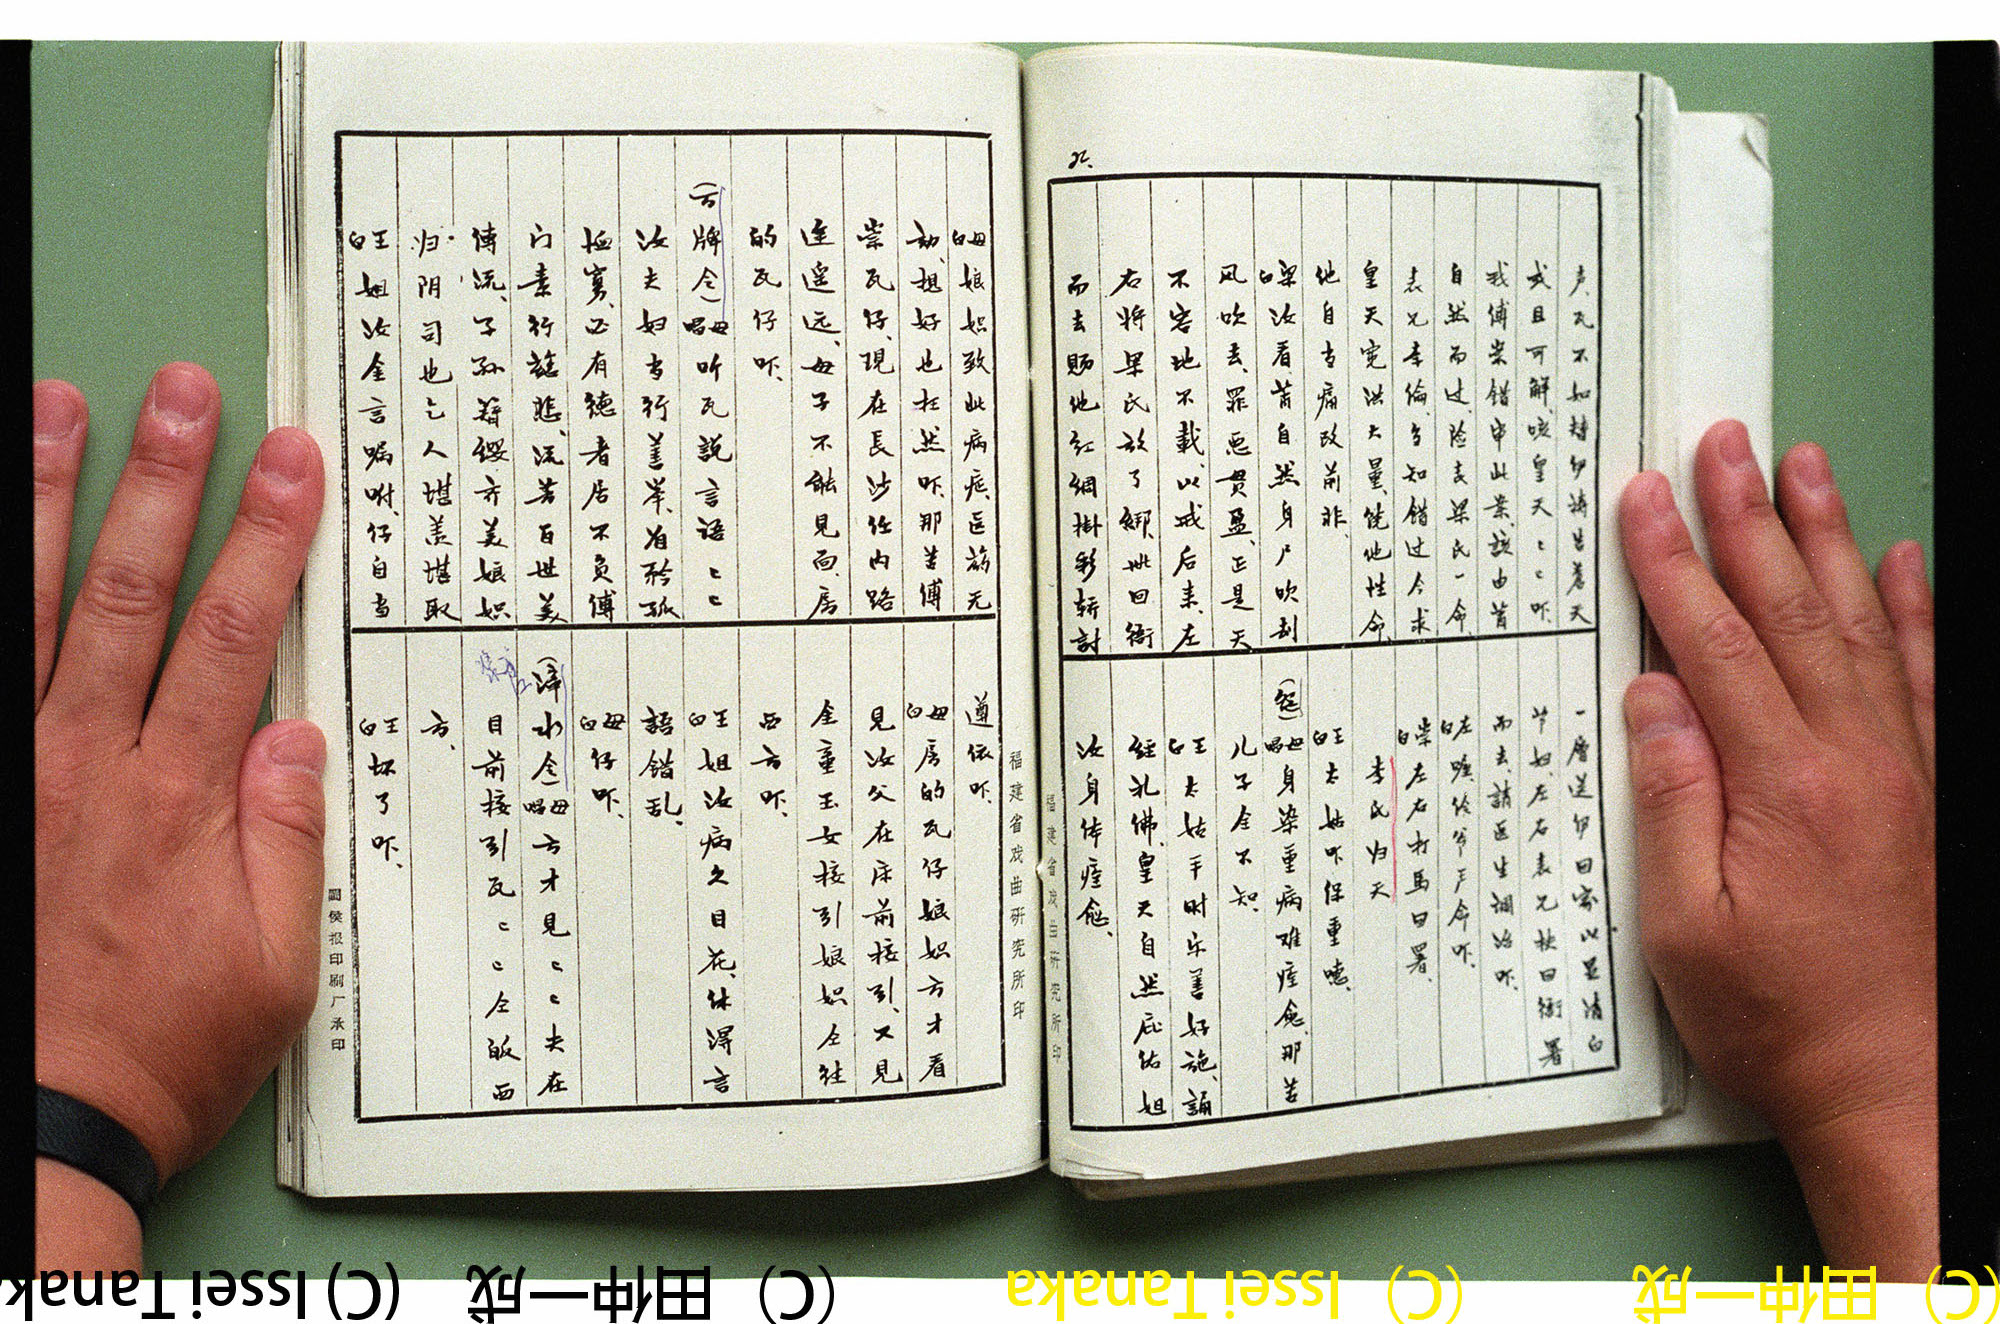 声、瓦不知替伊祷告蒼天
或且可解、咳皇天〻〻吓
我傅崇錯串此業、該由首
自然而过、险丧梁氏一命
表兄李倫、多知錯过今求
皇天宽洪大量、饒他性命
他自当痛改前非、
梁白汝看、首自然身尸吹刮
风吹去、罪恶贯盈、正是天
不容地不載、以戒后来、左
右将梁氏放了綁、毗回衙
而去賜他红綢掛彩轿討
一層送伊回家以显清白
节妇、左右表兄快回衙署
而去、請医生调治吓、
左白 嗄、伶爷严命吓、
崇白 左右打馬回署、
李氏归天
王白 大姑吓保重噫、
(怨) 母唱 身染重病难痊愈、那苦
儿子全不知、
王白 大姑平时乐善好施、誦
經礼佛、皇天自然庇佑姐
汝身体痊愈、
母白 娘妳致此病症、医葯无
効、想好也枉然吓、那苦傅
崇瓦仔、現在長沙任内、路
途遥远、母子不能見面、房
的瓦仔吓、
(云牌令) 母唱 听瓦說言语〻〻
汝夫妇当行善举、首矜孤
恤寡、必有德者居、不负傅
门素行慈悲、流芳百世美
傳流、子孙簪缨、亦美娘妳
归阴司也乞人堪羡堪取
王白 姐汝金言嘱咐、仔自当
遵依吓、
母白 房的瓦仔、娘妳方才看
見汝父在床前接引、又見
金童玉女接引娘妳仝往
西方吓、
王白 姐汝病久目花、休得言
語錯乱、
母白 仔吓、
(滴水令) 母唱 方才見〻〻夫在
目前接引瓦〻〻仝皈西
方、
王白 坏了吓、
福建省戏曲研究所印
福建省戏曲研究所印
閩侯报印刷厂承印
(C) Issei Tanaka
(C) 田仲一成
(C) Issei Tanaka
(C) 田仲一成